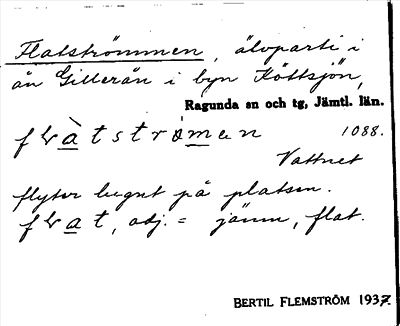 Flatströmmen, älvparti i
ån Gillerån i byn Köttsjön,
Ragunda sn och tg, Jämtl. län.
1088.
Vattnet
flyter lugnt på platsen.
adj. = jämn, flat.
BERTIL FLEMSTRÖM 1937.